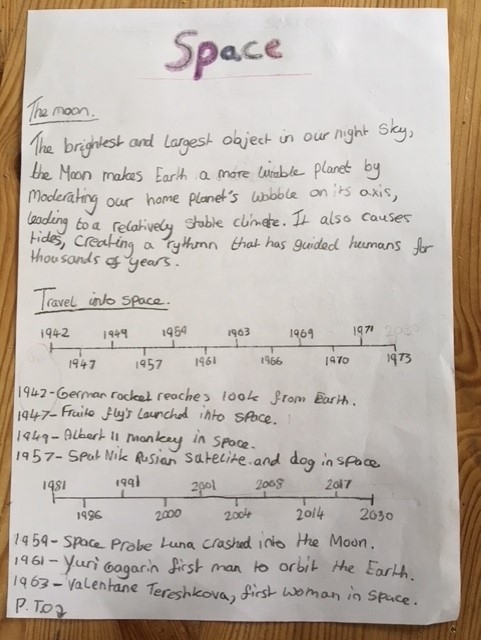 Space
The moon.
The brightest and largest object in our night sky,
the Moon makes Earth a more livable planet by
Moderating our home planet's wobble on its axis,
leading to a relatively stable climate. It also causes
tides, creating a rythmn that has guided humans for
thousands of years.
Travel into space.
1942 1949 1959 1963 1969 1971
1947 1957 1961 1966 1970 1973
1942-German rocket reaches 100k from Earth.
1947-Fruite fly's launched into space.
1949-Albert II monkey in space.
1957-Sput Nik Rusian satelite and dog in space
1981 1991 2001 2008 2017
1986 2000 2004 2014 2030
1959-Space Probe Luna crashed into the Moon.
1961-Yuri Gagarin first man to orbit the Earth.
1963-Valentane Tereshkova, first woman in space.
P.T.O